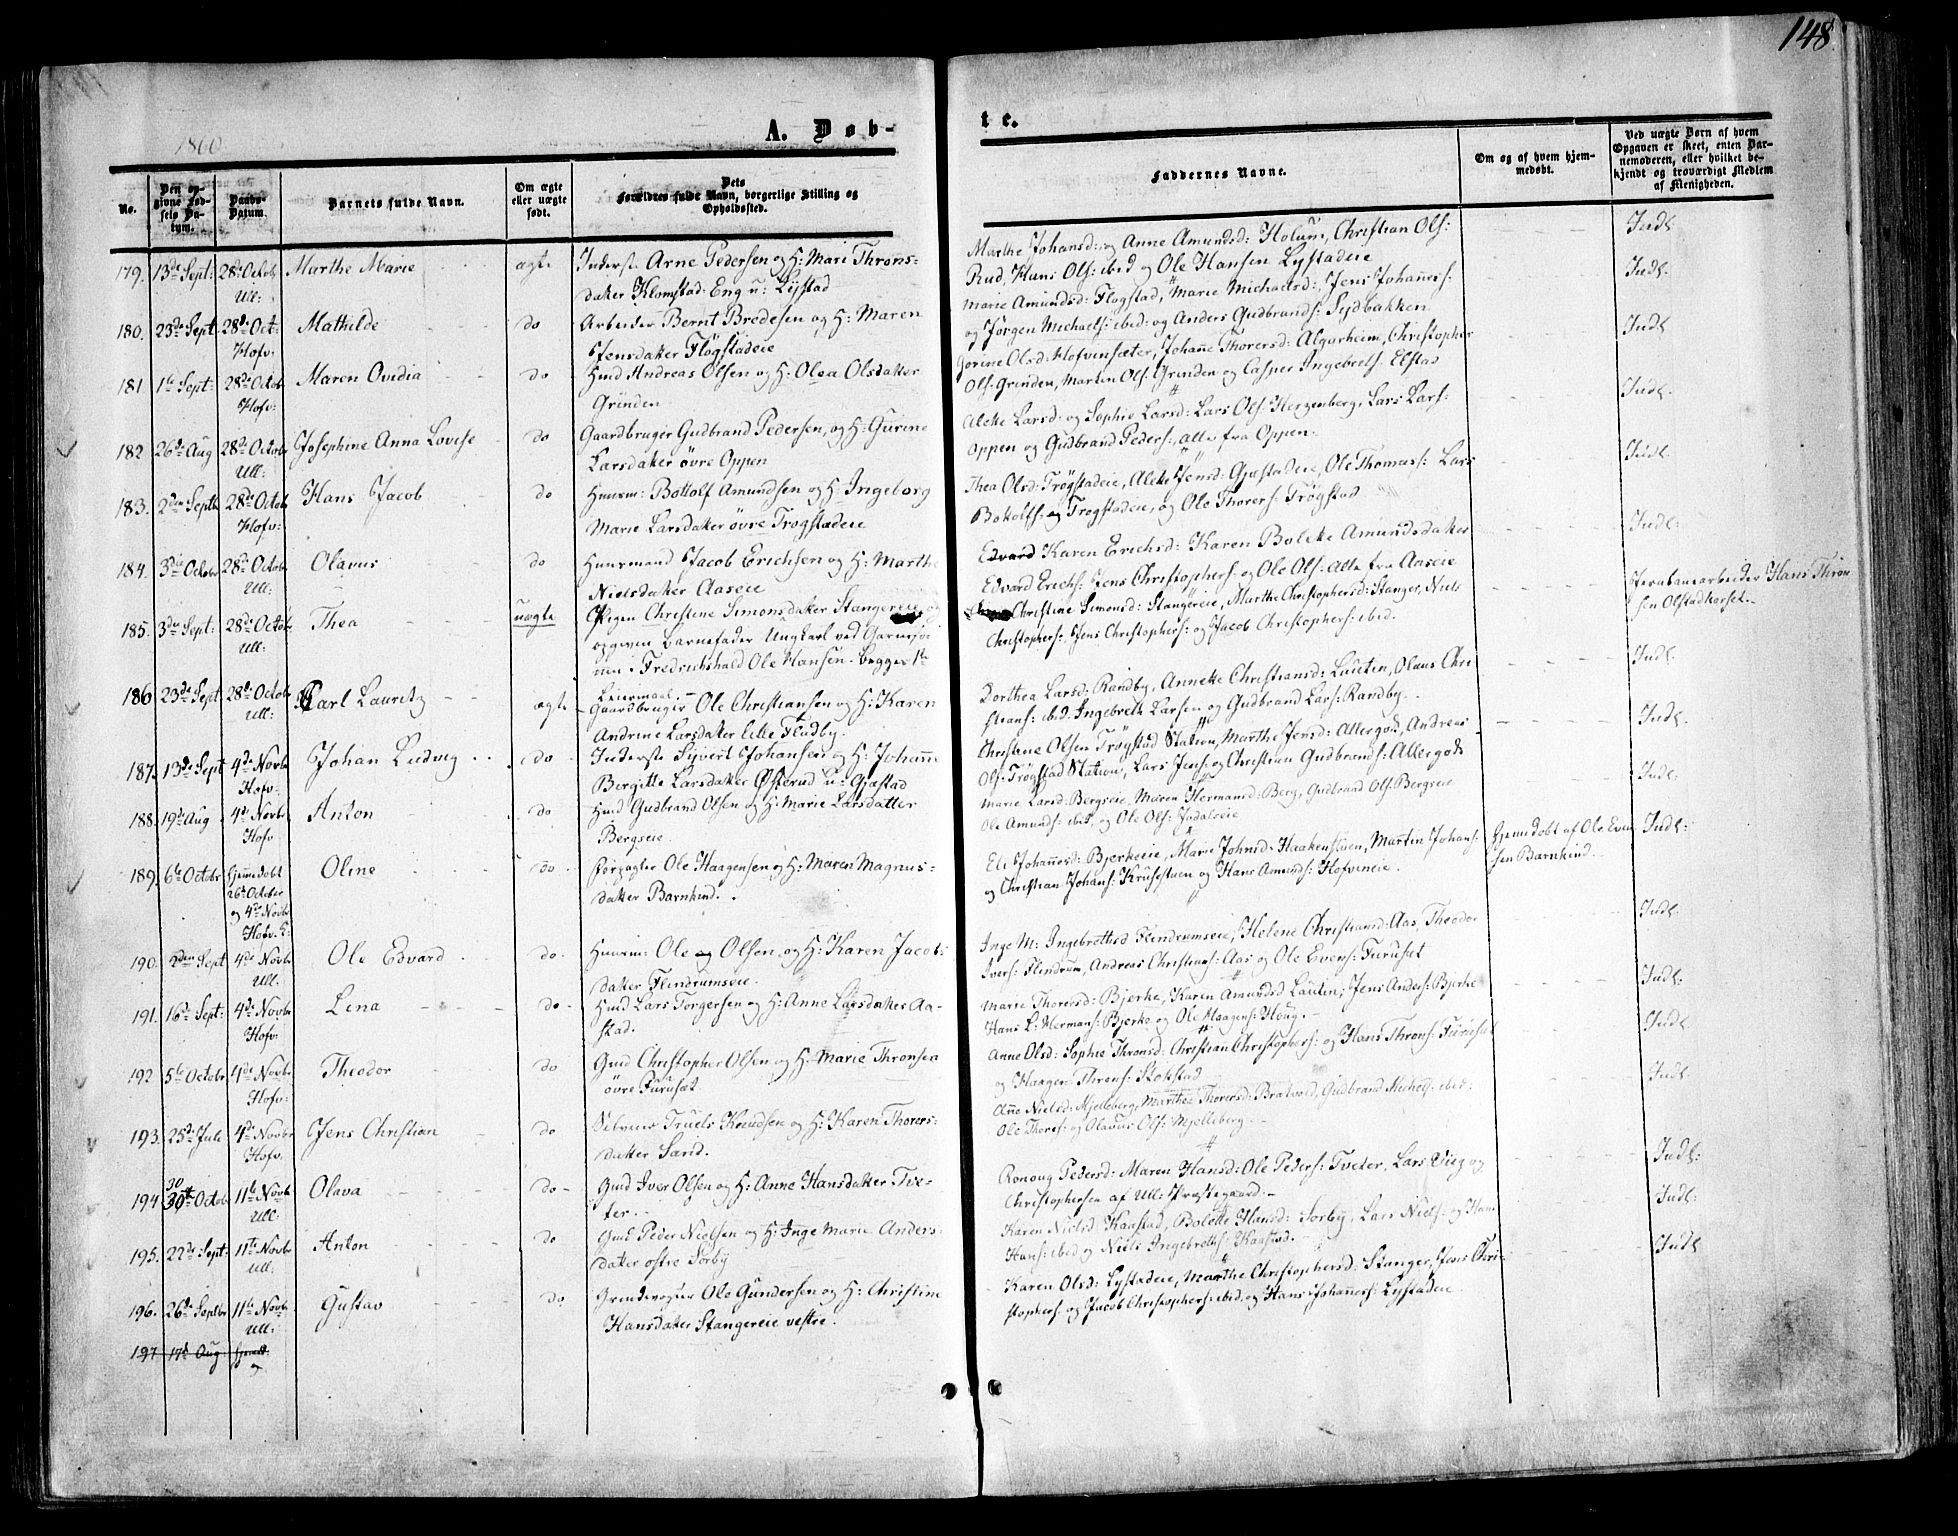 148
1860
A. Døb-
te.
No.
Den op-
givne Fød-
sels Da-
tum.
Daabs-
Datum.
Barnets fulde Navn.
Om ægte
eller uægte
født.
Dets
Forældres fulde Navn, borgerlige Stilling og
Opholdssted.
Faddernes Navne.
Om og af hvem hjem-
medøbt.
Ved uægte Børn af hvem
Opgaven er skeet, enten Bar-
nemoderen, eller hvilket be-
kjendt og troværdigt Medlem
af Menigheden.
179. 13de Sept: 28de Octob Ull: Marthe Marie ægte Inderste Arne Pedersen og H: Mari Throns-
datter Klomstad: Eng u: Lystad
Marthe Johansd: og Anne Amundsd: Holum, Christian Ols:
Rud, Hans Ols: ibid og Ole Hansen Lystadeie
Indl
180. 23de Sept 28de Oct: Hofv: Mathilde do Arbeider Bernt Bredesen og H: Maren
Jensdatter Flogstadeie
Marie Amundsd: Flogstad, Marie Michaelsd:, Jens Johannes:
og Jørgen Michaels: ibid: og Anders Gudbrands: Sydbakken
Indl.
181 1te Sept: 28de Octob Hofv: Maren Ovidia do Hmd Andreas Olsen og H: Olea Olsdatter
Grinden
Gorine Olsd: Hofvinsæter, Johanne Thorersd: Algarheim, Christopher
Ols: Grinden, Martin Ols: Grinden og Casper Ingebrets: Elstad
Indl
182 26de Aug 28de Octob Ull: Josephine Anna Lovise do Gaardbruger Gudbrand Pedersen, og H: Gurine
Larsdatter övre Oppen
Alette Larsd: og Sophie Larsd: Lars Ols: Herzenberg, Lars Lars:
Oppen og Gudbrand Peders:, alle fra Oppen.
Indl.
183. 2den Septb 28de Octob Hofv: Hans Jacob do Huusm: Bottolf Amundsen og H: Ingeborg
Marie Larsdatter övre Trogstadeie
Thea Olsd: Trögstadeie, Alette Jensd: Gjæstadeie, Ole Thomas: Lars
Bottolfs: og Trogstadeie, og Ole Thorers: Trögstad
Indl.
184. 3die Octobr 28de Octob Ull: Olavus do Huusmand Jacob Erichsen og H: Marthe
Nielsdatter Aaseie
Edvard Karen Erichsd: Karen Bolette Amundsdatter
Edvard Erichs: Jens Christophers: og Ole Ols: alle fra Aaseie
Indl:
185. 3die Sept: 28de Octob Ull: Thea uægte Pigen Christine Simonsdatter Stangereie og
opgiven Barnefader Ungkarl ved Garniso-
nen i Fredrichshald Ole Hansen. begges 1te
Leiermaal.
Christine Simonsd: Stangereie, Marthe Christophersd: Stanger, Niels
Christophers: Jens Christophers: og Jacob Christophers: ibid.
Jernbanearbeider Hans Thron
sen Olstadkorset.
186 23de Sept 28de Octob Ull: Carl Lauritz ægte Gaardbruger Ole Christiansen og H: Karen
Andrine Larsdatter Lille Fladby.
Dorthea Larsd: Randby, Annette Christiansd: Lautin, Olaus Chri
stians: ibid. Ingebreth Larsen og Gudbrand Lars: Randby.
Indl:
187. 13de Sept 4de Novbr Hofv: Johan Ludvig do Inderste Syvert Johansen og H: Johanne
Bergitte Larsdatter Österud u: Gjæstad
Christine Olsen Trögstad Station, Marthe Jensd: Allergodt, Andreas
Ols: Trögstad Station, Lars Jens: og Christian Gudbrands: Allergodt
Indl:
188. 19de Aug 4de Novbr Hofv Anton do Hmd Gudbrand Olsen og H: Marie Larsdatter
Bergseie
Marie Larsd: Bergseie, Maren Hermansd: Berg, Gudbrand Ols: Bergseie
Ole Amunds: ibid, og Ole Ols: Jødalseie
Indl:
189. 6te Octobr Hjemmedøbt
26de October
og 4de Novbr
Hofv. K: Oline do Forpagter Ole Haagensen og H: Maren Magnus-
datter Barnkind.
Eli Johannesd: Bjerkeie, Marie Johnsd: Haakenstuen, Martin Johans:
og Christian Johans: Krusestuen og Hans Amunds: Hofveneie
Hjemmedøbt af Ole Even
sen Barnkind.
Indl:
190. 2den Sept 4de Novbr Ull. Ole Edvard do. Huusm: Ole og Olsen og H: Karen Jacobs:
datter Flindrumseie.
Inge M: Ingebrethsd Flindrumseie, Helene Christiansd: Aas, Theodor
Ivers: Flindrum, Andreas Christians: Aas og Ole Evens: Furuset
Indl:
191. 16de Sept: 4de Novbr Hofv: Lena do Hmd Lars Torgersen og H: Anne Larsdatter Aa-
stad.
Marie Thorersd: Bjerke, Karen Amundsd Lautin, Jens Anders: Bjerke
Hans L: Hermans: Bjerke og Ole Haagens: Houg.
Indl.
192 5te Octobr 4de Novbr Hofv: Theodor do Gmd Christopher Olsen og H: Marie Thronsen
övre Furuset.
Anne Olsd: Sophie Thronsd: Christian Christophers: og Hans Throns: Furuset
og Haagen Throns: Stokstad
Indl
193. 25de Juli 4de Novbr Hofv. Jens Christian do Selveier Truels Knudsen og H: Karen Thorers-
datter Sand.
Anne Nielsd: Mjelleberg, Marthea Thorersd: Bratvold, Gudbrand Michels: ibid:
Ole Thores: og Olavus Ols: Mjelleberg.
Indl.
194 30 30te Octobr 11te Novbr Ull: Olava do Gmd Iver Olsen og H: Anne Hansdatter Tve-
ter.
Ronoug Pedersd: Maren Hansd: Ole Peders: Tveter, Lars Vieg og
Christophersen af Ull: Præstegaard.
Indl:
195. 22de Sept: 11te Novbr Ull. Anton do Gmd Peder Nielsen og H: Inge Marie Anders-
datter østre Sörby
Karen Nielsd: Kaastad, Bolette Hansd: Sörby, Lars Niels: og Hans
Hans: ibid og Niels Ingebreths: Kaastad.
Indl:
196. 26de Septbr 11te Novbr Ull: Gustav do Grindevogter Ole Gundersen og H: Christine
Hansdatter Stangereie vestre.
Karen Olsd: Lystadeie, Marthe Christophersd: Stanger, Jens Chri-
stophers: og Jacob Christophers: ibid. og Hans Johanness: Lystadeie
Indl
197 17de Aug hjemdt
og